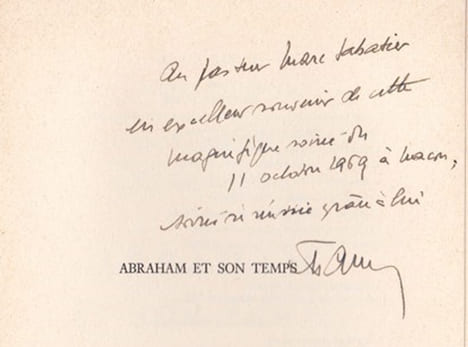 Au pasteur Marc Sabatier
en excellent souvenir de cette
magnifique soirée du
11 octobre 1969 à Macon,
soirée si réussie grâce à lui
ABRAHAM ET SON TEMPS